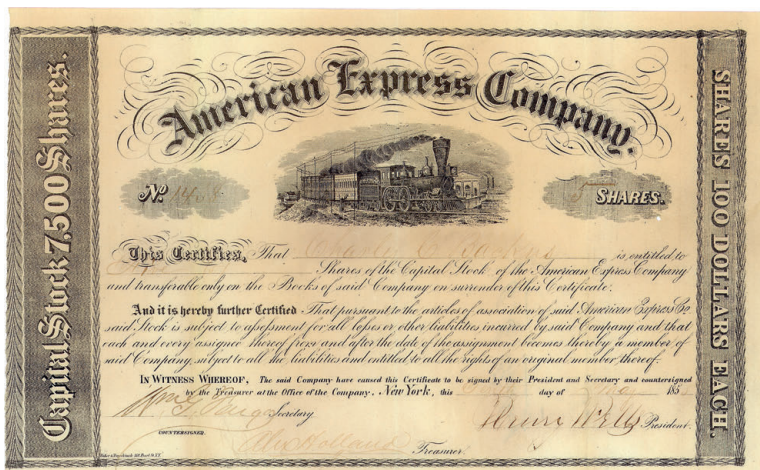 American Express Company.
Capital Stock 7,500 Shares.
SHARES 100 DOLLARS EACH.
No. 1468
5 SHARES.
This Certifies, That is entitled to
Shares of the Capital Stock of the American Express Company
and transferable only on the Books of said Company on surrender of this Certificate.
And it is hereby further Certified That pursuant to the articles of association of said American Express Co
said Stock is subject to assessment for all losses or other liabilities incurred by said Company and that
each and every assignee thereof from and after the date of the assignment becomes thereby a member of
said Company, subject to all the liabilities and entitled to all the rights of an original member thereof.
IN WITNESS WHEREOF, The said Company have caused this Certificate to be signed by their President and Secretary and countersigned
by the Treasurer at the Office of the Company, New York, this day of May 185
Secretary
Henry Wells President.
COUNTERSIGNED.
Alex Holland
Treasurer.